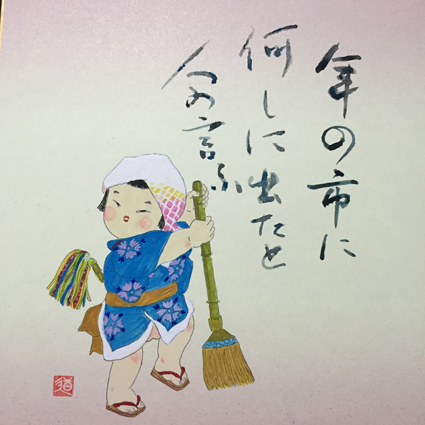 年の市に
何しに出たと
人の言ふ
道